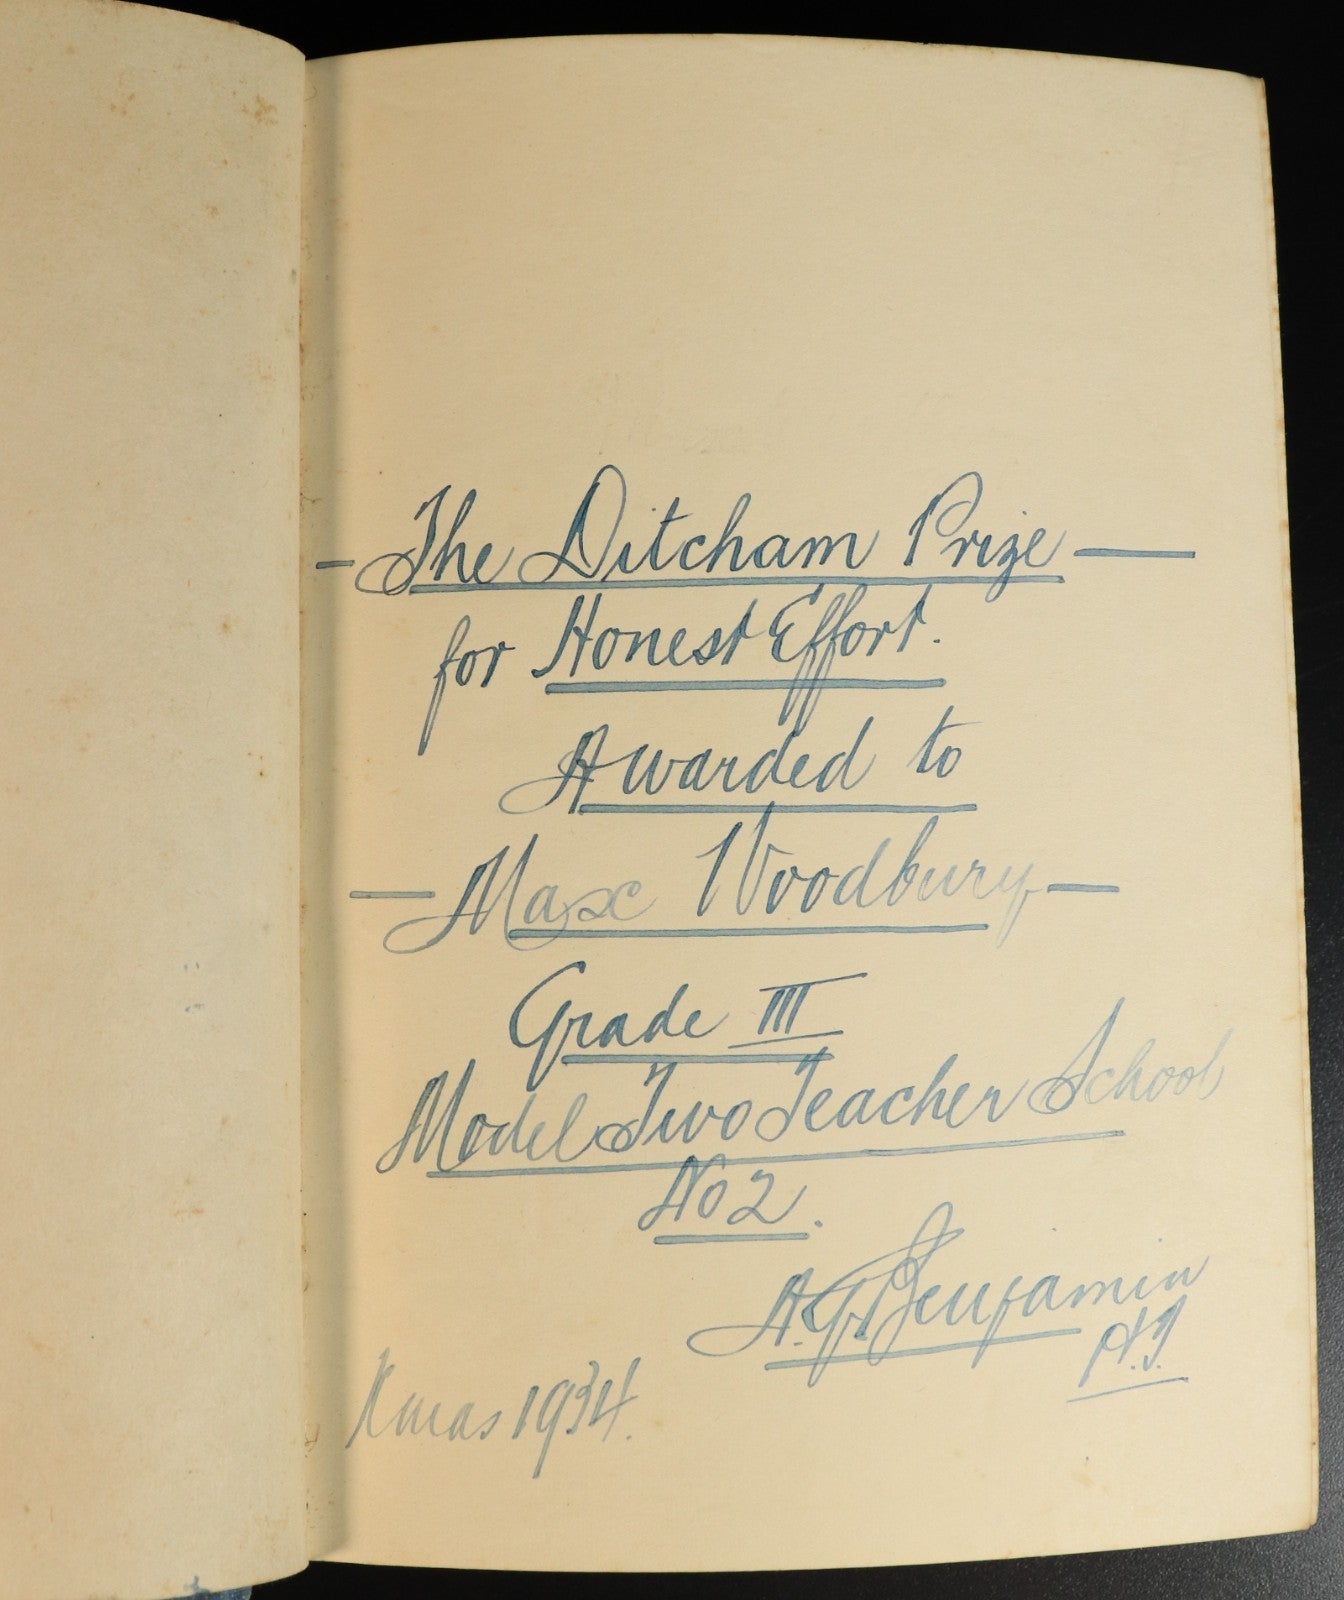 – The Ditcham Prize —
for Honest Effort.
Awarded to
— Max Woodbury —
Grade III
Model Two Teacher School
No 2.
A. G. Benjamin
H.T.
Xmas 1934.